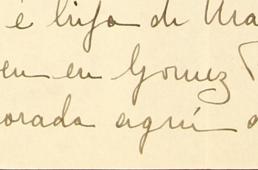 é hija de Ma
en en Gomez
orada aquí